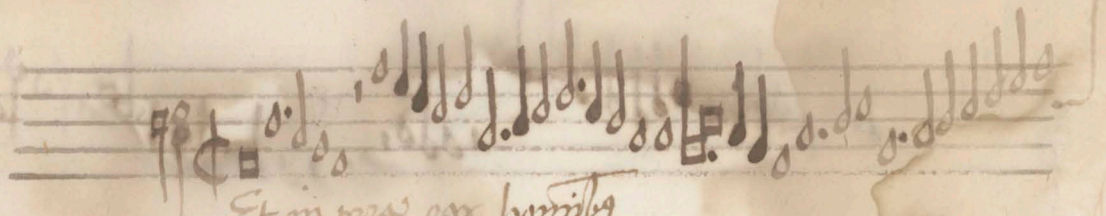 Et in terra pax hominibꝫ